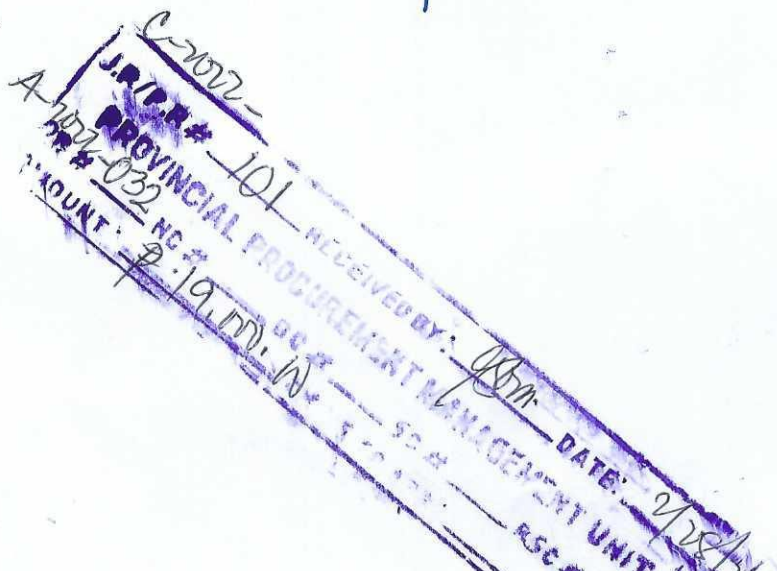 C-2022-
J.R/P.R# 101 RECEIVED BY: DATE: 2/28/
PROVINCIAL PROCUREMENT MANAGEMENT UNIT
A-2022-032
PR# NC# DC# SC# RSC#
AMOUNT: ₱ 19,000.00